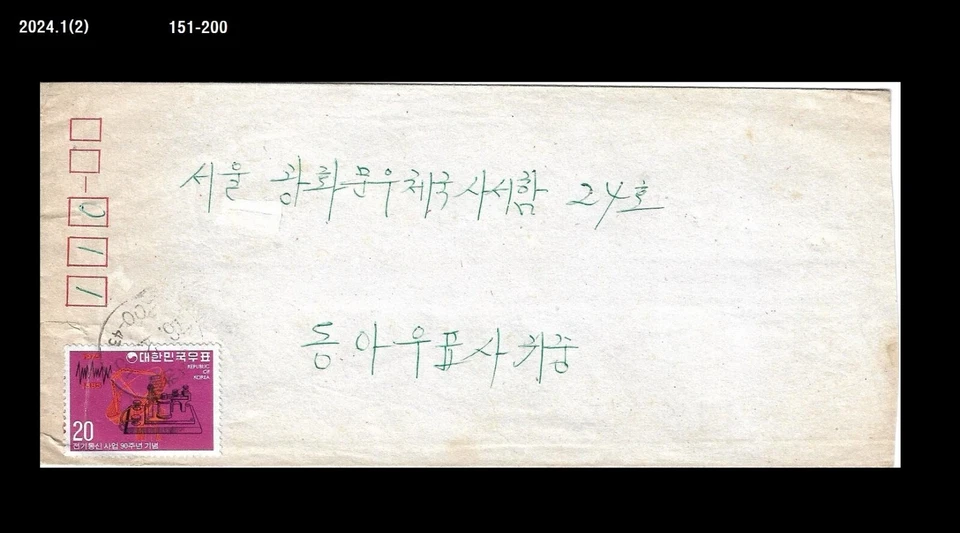 2024.1(2) 151-200
서울 광화문우체국사서함 24호
110
동아우표사 귀중
대한민국우표
REPUBLIC
OF
KOREA
20
전기통신 사업 90주년 기념